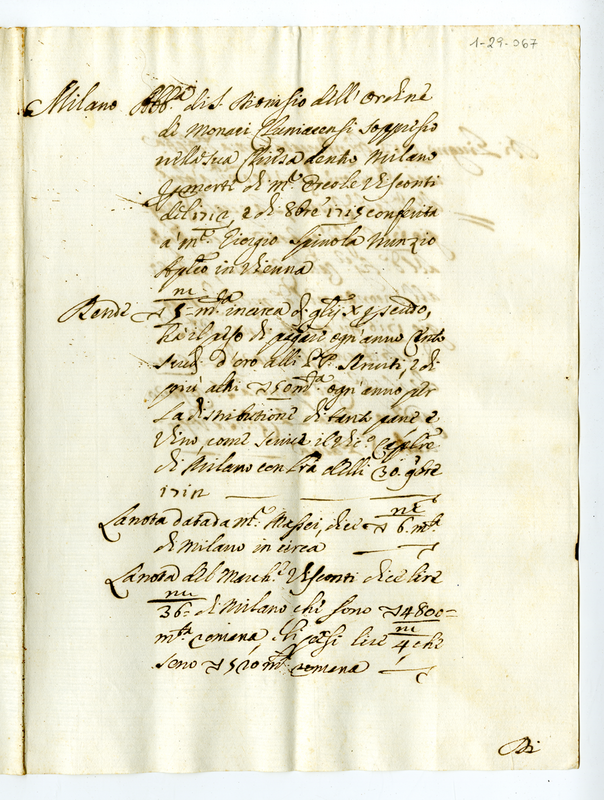 1-29-067
Milano Abb.ª di S. Dionisio dell'Ordine
di Monaci Cluniacensi soppresso
nella sua Chiusa dentro Milano
p morte di m.r Ercole Visconti
del 1712, 2 di 8bre 1715 conferita
a m.r Giorgio Spinola Nunzio
Aplico in Vienna
Rende 5 m.ta in circa d. glij X p scudo,
ha il peso di pagare ogn'anno Cento
scudi d'oro alli PP. Serviti, e di
più altri 150 m.ta ogn'anno per
la distributione di tanto pane e
vino, come scrive il Vic.o Caplre
di Milano con sua delli 30. 9bre
1712
La nota data da m.r Massei, dice 6 m.ta
di Milano in circa
La nota del March.e Visconti dice lire
36 di Milano che sono 4800
m.ta romana, di pesi lire 4 che
sono 520 m.ta romana
Di